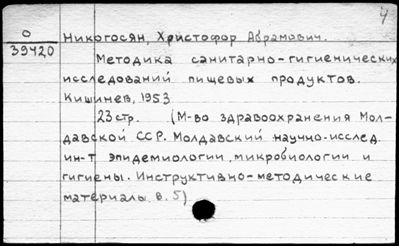 4
О
39420
Никогосян, Христофор Абрамович.
Методика санитарно-гигиенических
исследований пищевых продуктов.
Кишинев, 1953
23 стр. (М-во здравоохранения Мол-
давской ССР. Молдавский научно-исслед.
ин-т эпидемиологии, микробиологии и
гигиены. Инструктивно-методические
материалы. в. 5)